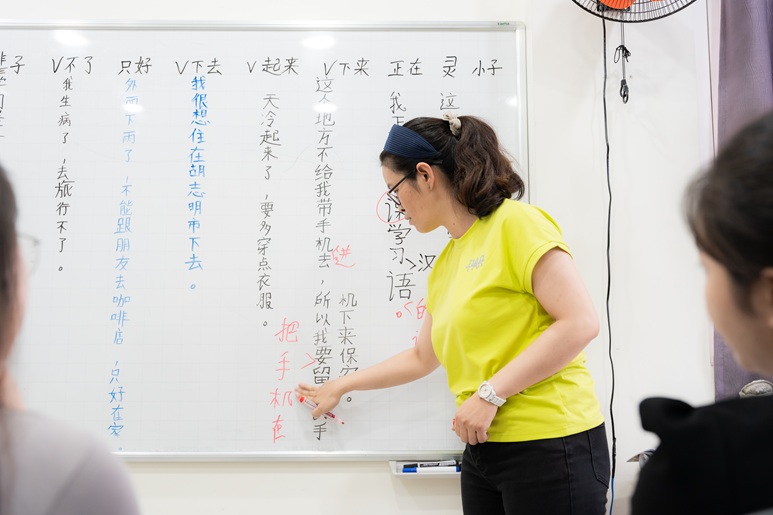 子 V不了 只好 V下去 V起来 V下来 正在 灵 小子
我生病了，去旅行不了。
外面下雨了，不能跟朋友去咖啡店，只好在家。
我很想住在胡志明市下去。
天冷起来了，要多穿点衣服。
把手机在
这个地方不给我带手机去，所以我要留手
进
机下来保安。
我
课学习语
>汉
这